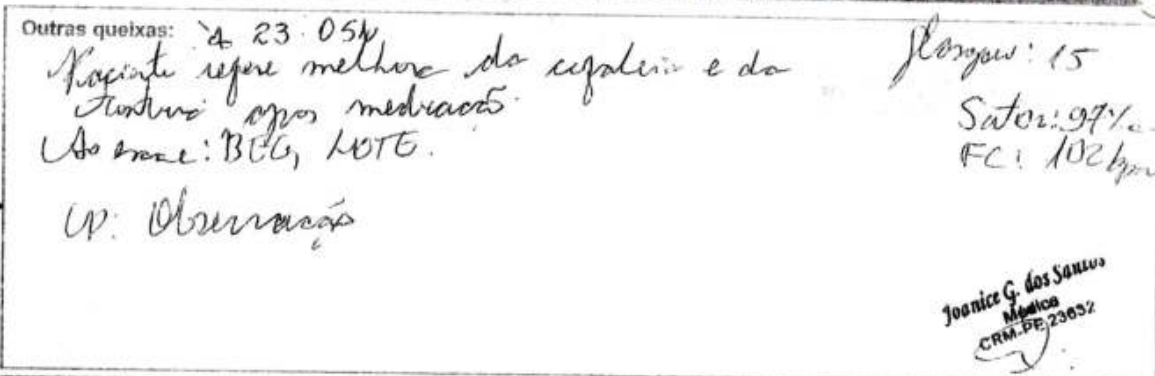 Outras queixas: às 23:05h
Paciente refere melhora da cefaleia e da
tontura após medicação.
Ao exame: BEG, LOTE.
CD: Observação
Glasgow: 15
SatO2: 97%
FC: 102 bpm
Joanice G. dos Santos
Médica
CRM-PE 23632